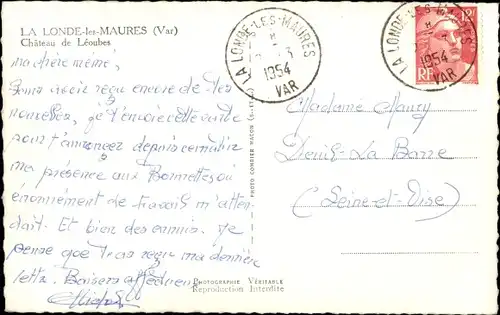 LA LONDE-les-MAURES (Var)
Château de Léoubes
ma chère mémé,
Sans avoir reçu encore de tes
nouvelles, je t'envoie cette carte
pour t'annoncer depuis ce matin
ma présence aux Bormettes où
énormément de travail m'atten-
dait. Et bien des ennuis. Je
pense que tu as reçu ma dernière
lettre. Baisers affectueux
LA LONDE-LES-MAURES
1954
VAR
PHOTO COMBIER MACON
PHOTOGRAPHIE VÉRITABLE
Reproduction Interdite
LA LONDE-LES-MAURES
1954
VAR
12F
RF
Madame Maury
Deuil-La Barre
(Seine-et-Oise)